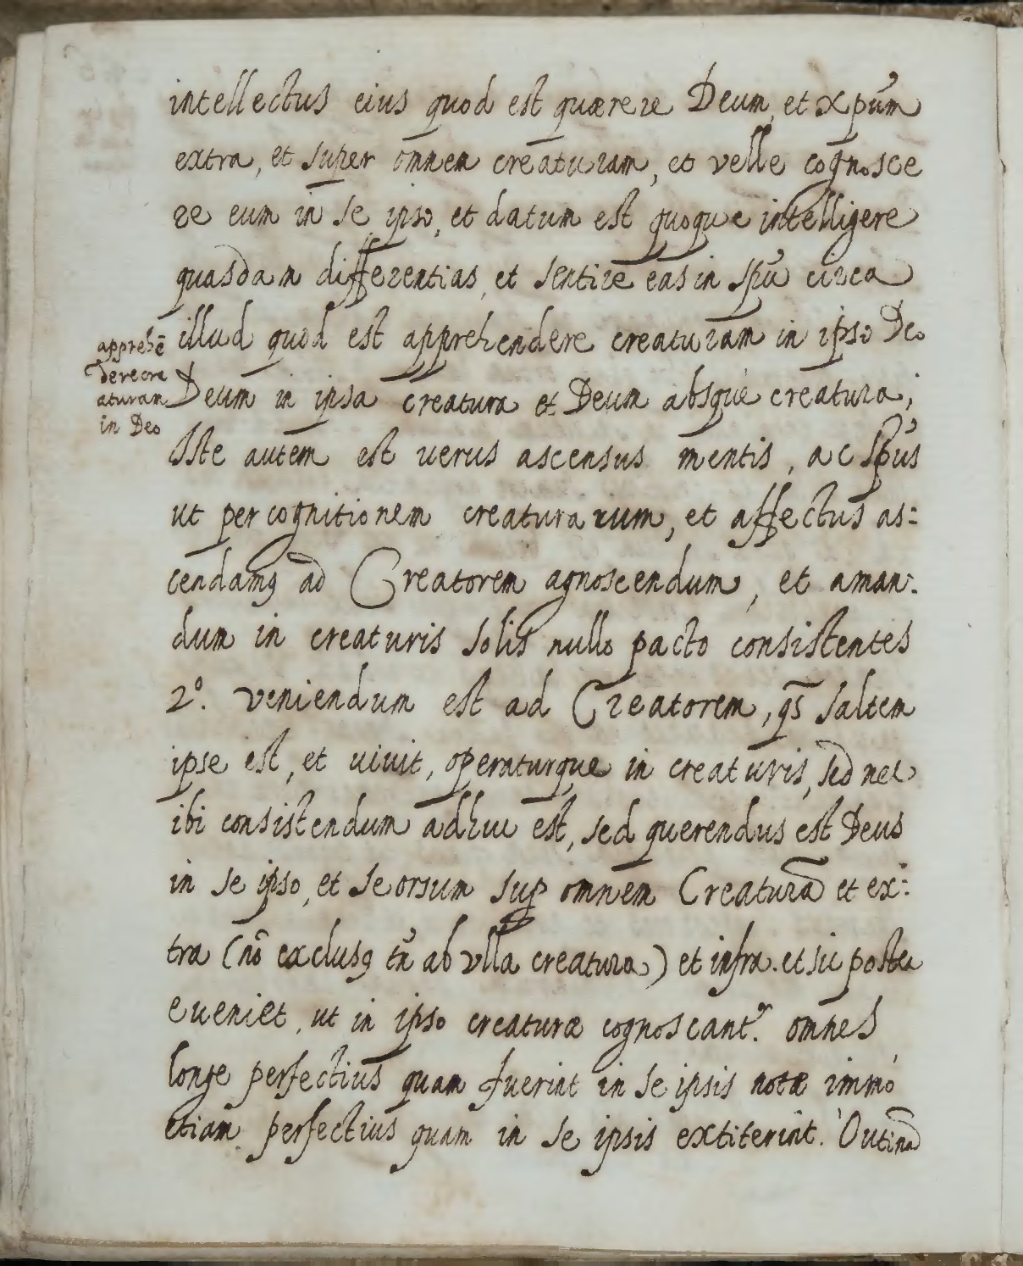 intellectus eius quod est quærere Deum, et xpūm
extra, et super omnem creaturam, et velle cognosce
re eum in se ipso, et datum est quoque intelligere
quasdam differentias, et sentire eas in spū circa
illud quod est apprehendere creaturam in ipso Deo
Deum in ipsa creatura et Deum absque creatura;
apprehē
dere cre
aturam
in Deo
Iste autem est verus ascensus mentis, ac spūs
ut per cognitionem creaturarum, et affectus as:
cendamꝯ ad Creatorem agnoscendum, et aman:
dum in creaturis solis nullo pacto consistentes
2º. veniendum est ad Creatorem, qs̄ saltem
ipse est, et uiuit, operaturque in creaturis, sed nec
ibi consistendum adhuc est, sed querendus est Deus
in se ipso, et seorsum suꝑ omnem Creaturā et ex:
tra (nō exclusꝯ tn̄ ab vlla creatura) et infra. et sic postea
eueniet, ut in ipso creaturæ cognoscantʳ. omnes
longe perfectius quam fuerint in se ipsis notæ immò
etiam perfectius quam in se ipsis extiterint. O utinā